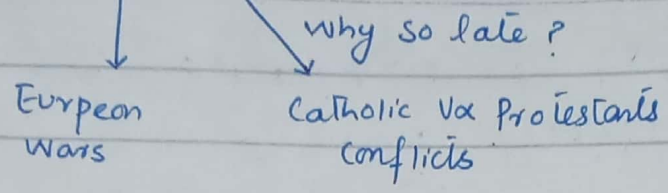 Why so late ?
Eurpeon
Wars
Catholic Vs Protestants
conflicts